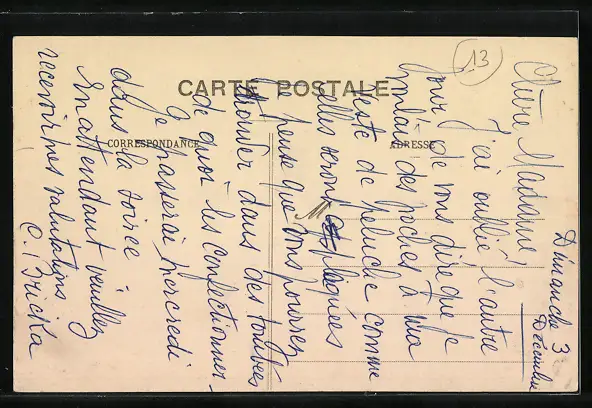 CARTE POSTALE
CORRESPONDANCE
ADRESSE
13
Dimanche 3
Décembre
Chère Madame
J'ai oublié l'autre
jour de vous dire que je
voulais des poches à ma
veste de peluche comme
elles seront appliquées
M
Je pense que vous pourrez
trouver dans des tombées
de quoi les confectionner -
Je passerai mercredi
dans la soirée
En attendant veuillez
recevoir mes salutations
C. Bricka